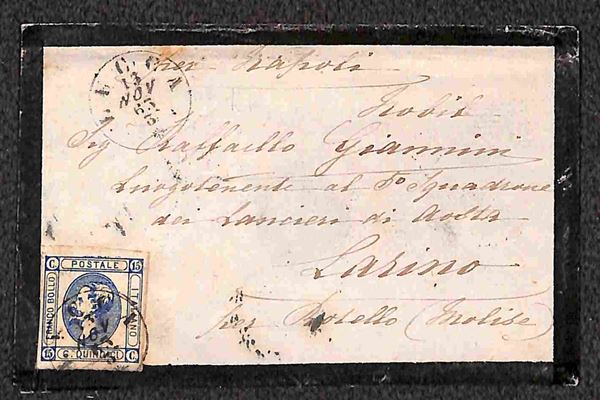 per Napoli
LUCCA
13
NOV
63
Nobil
Sig Raffaello Giannini
Luogotenente al 5° Squadrone
dei Lancieri di Aosta
Larino
per Rotello (Molise)
C. POSTALE 15
FRANCO BOLLO
ITALIANO
15 C. QUINDICI C.